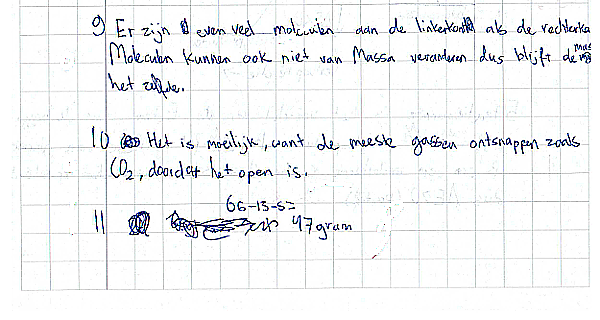 9 Er zijn even veel moleculen aan de linkerkant als de rechterka
Moleculen kunnen ook niet van Massa veranderen dus blijft de massa
het zelfde.
10 Het is moeilijk, want de meeste gassen ontsnappen zoals
CO₂, doordat het open is.
66-13-5=
11 47 gram